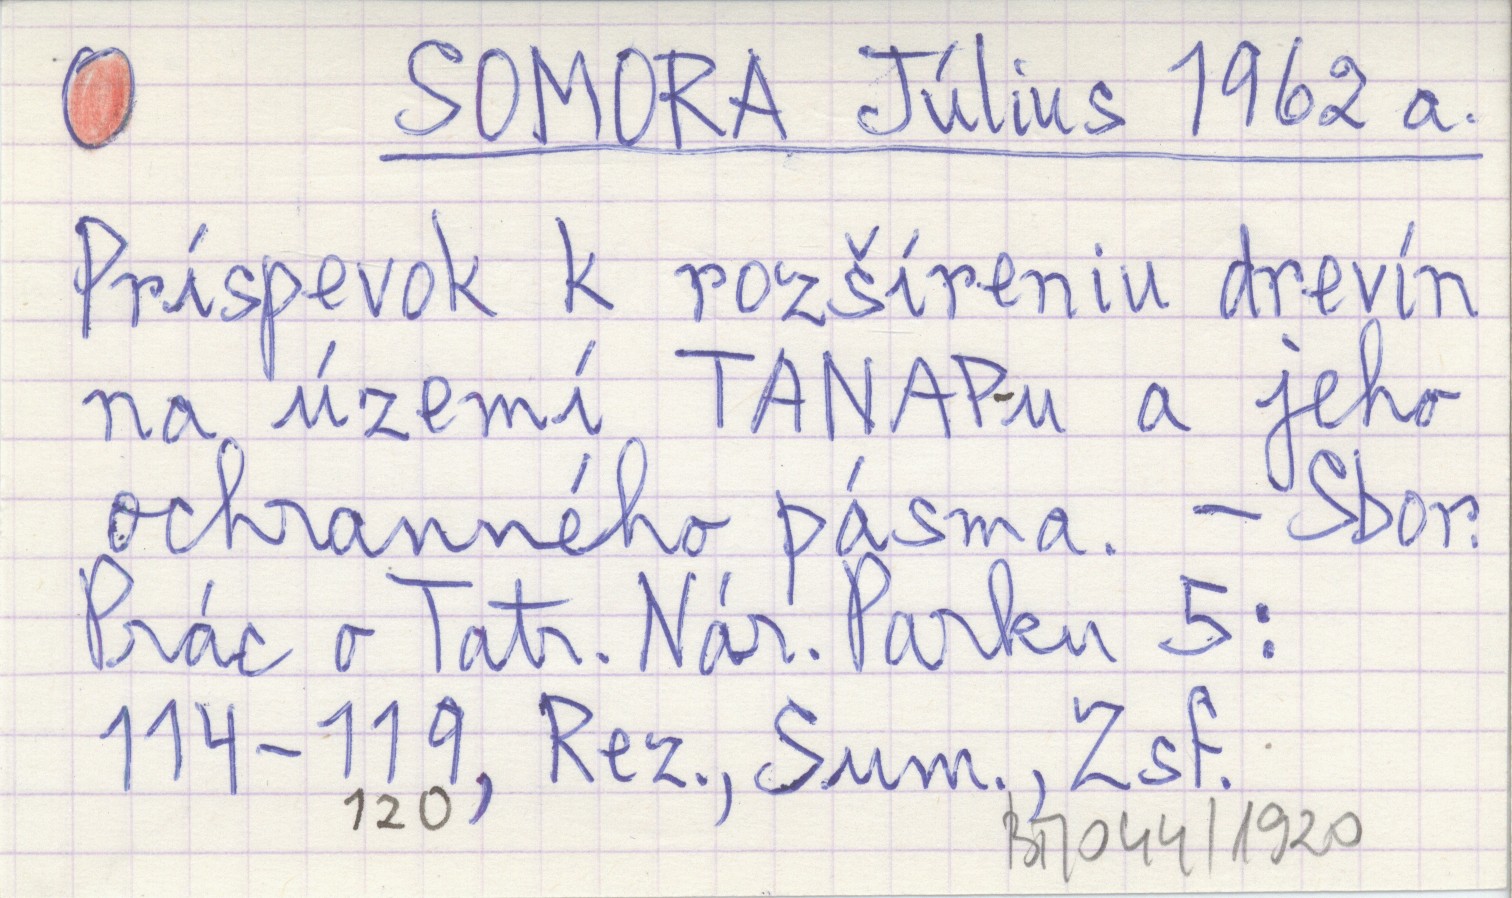 SOMORA Július 1962 a.
Príspevok k rozšíreniu drevín
na území TANAP-u a jeho
ochranného pásma. - Sbor.
Prác o Tatr. Nár. Parku 5:
114-119, Rez., Sum., Zsf.
120
044/1920